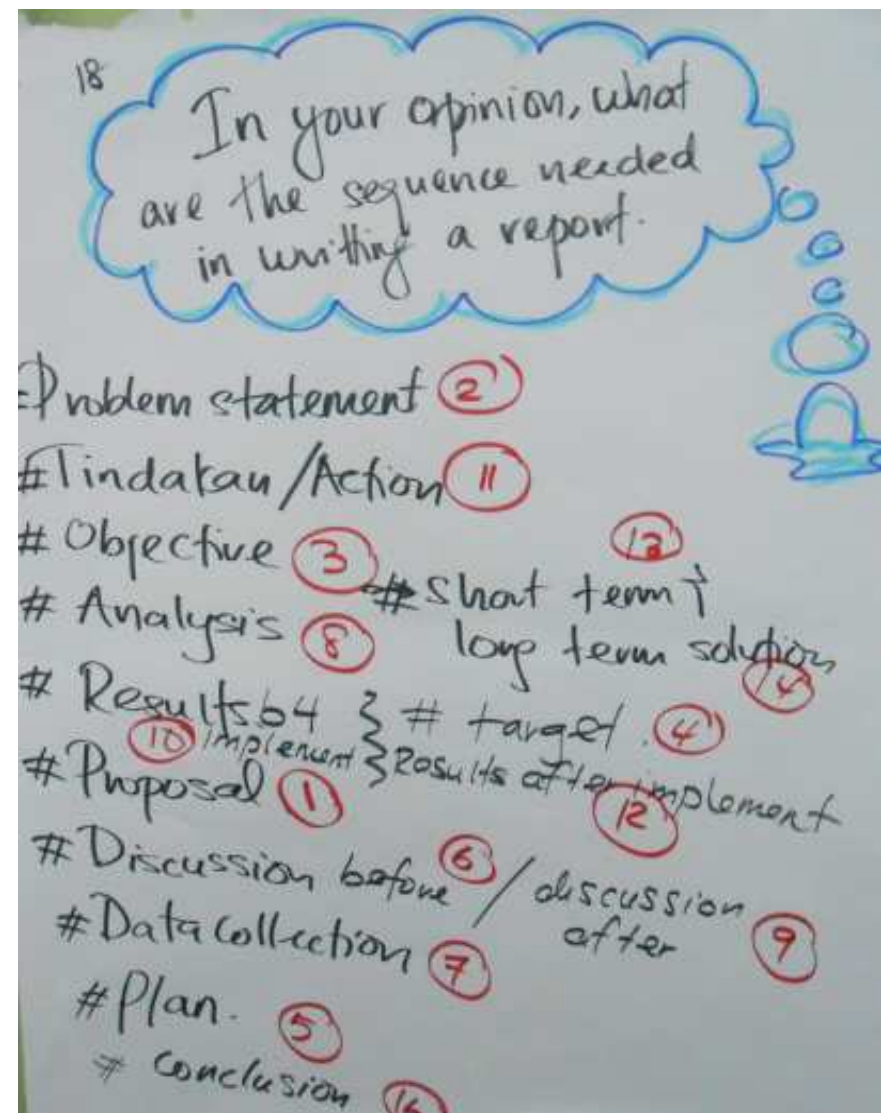 18
In your opinion, what
are the sequence needed
in writting a report.
Problem statement 2
#Tindakan/Action 11
# Objective 3
13
# Short term &
long term solution
14
# Analysis 8
# Results b4 } # target. 4
10 implement } Results after implement
12
#Proposal 1
#Discussion before 6 / discussion
after 9
#Data collection 7
#Plan. 5
# Conclusion